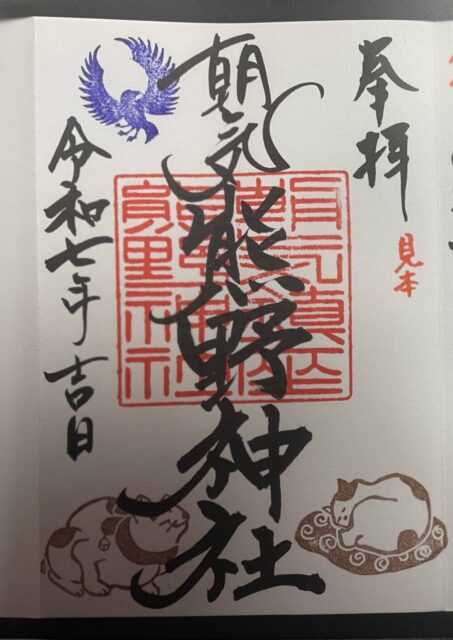 奉拝
見本
朝気熊野神社
令和七年吉日